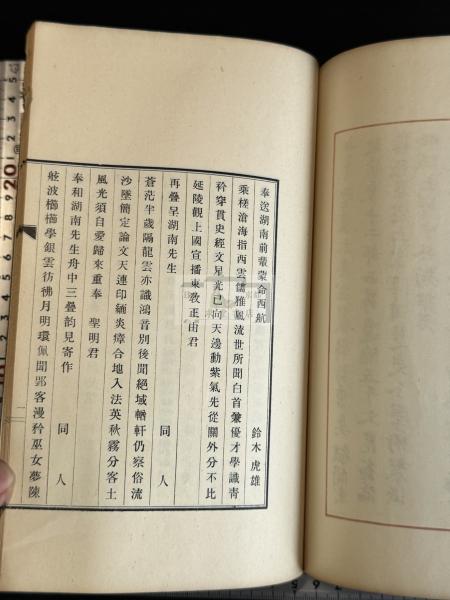 奉送湖南前輩蒙命西航
鈴木虎雄
乘槎滄海指西雲儒雅風流世所聞白首兼優才學識靑
衿穿貫史經文星光已向天邊動紫氣先從關外分不比
延陵觀上國宣播東敎正由君
再疊呈湖南先生
同人
蒼茫半歲隔龍雲亦識鴻音別後聞絕域輶軒仍察俗流
沙墜簡定論文天連印緬炎瘴合地入法英秋霧分客土
風光須自愛歸來重奉 聖明君
奉和湖南先生舟中三疊韵見寄作
同人
舷波櫛櫛學銀雲彷彿月明環佩聞郢客漫矜巫女夢陳
二